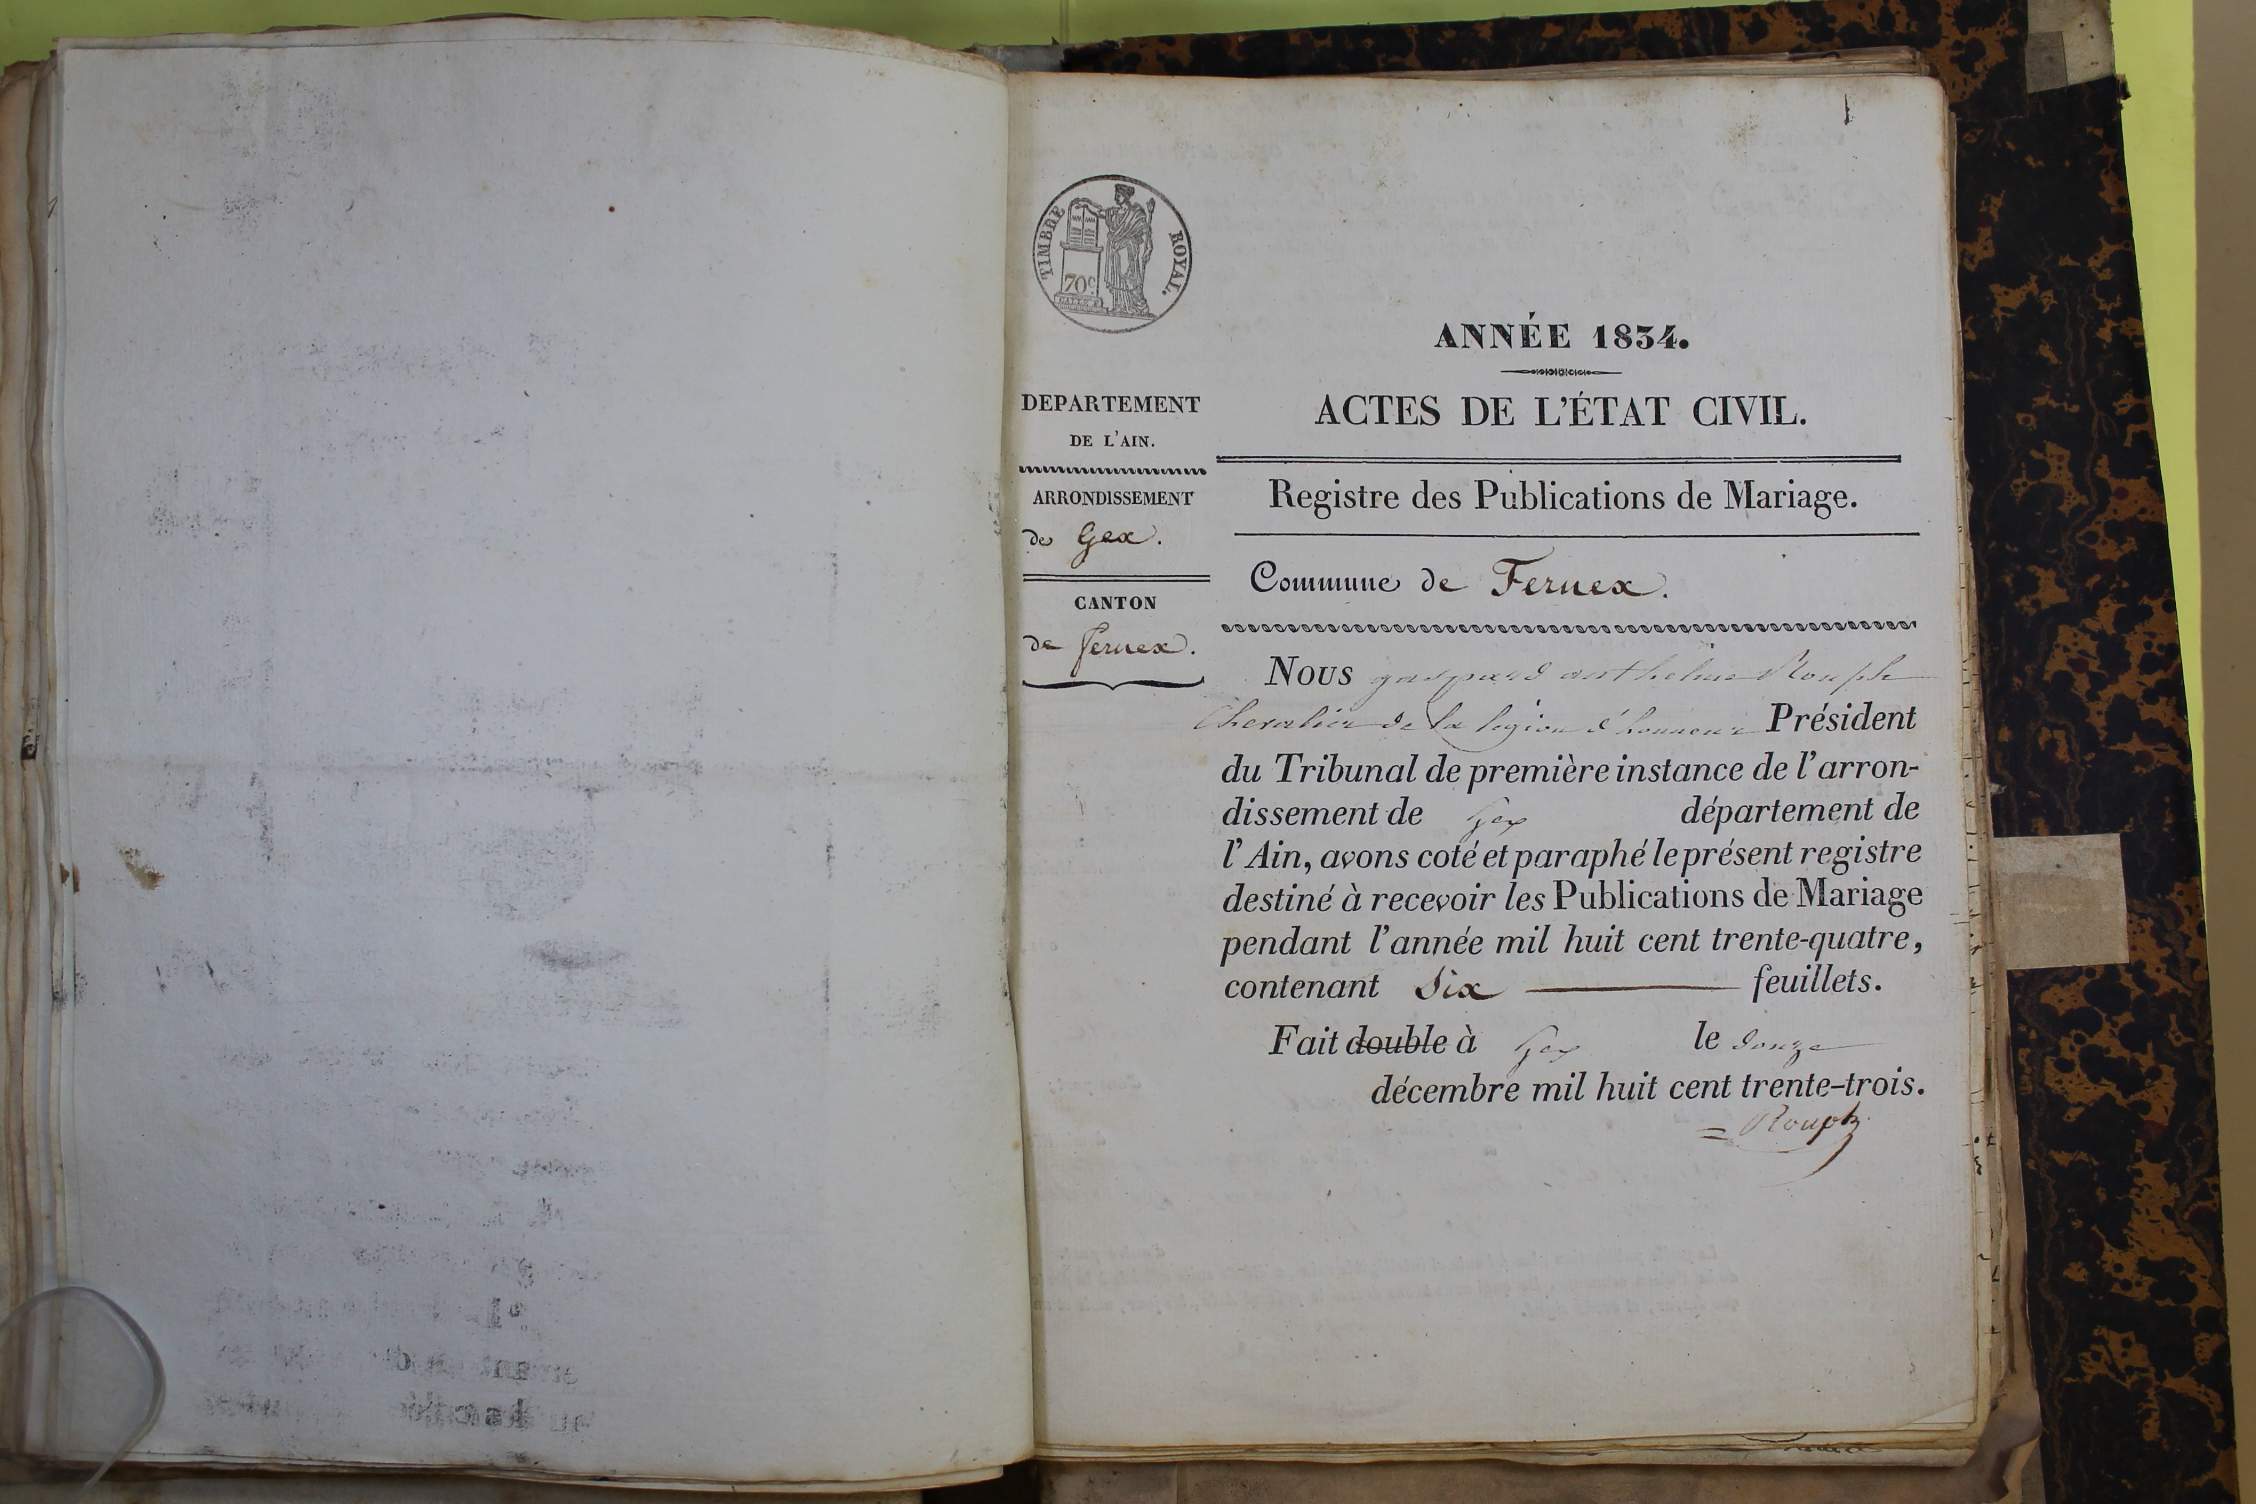 TIMBRE ROYAL.
70c
ANNÉE 1834.
ACTES DE L'ÉTAT CIVIL.
Registre des Publications de Mariage.
DEPARTEMENT
DE L'AIN.
ARRONDISSEMENT
de Gex.
CANTON
de fernex.
Commune de Fernex.
Nous gaspard anthelme Rouph
Chevalier de la legion d'honneur Président
du Tribunal de première instance de l'arron-
dissement de Gex département de
l'Ain, avons coté et paraphé le présent registre
destiné à recevoir les Publications de Mariage
pendant l'année mil huit cent trente-quatre,
contenant Six feuillets.
Fait double à Gex le douze
décembre mil huit cent trente-trois.
Rouph